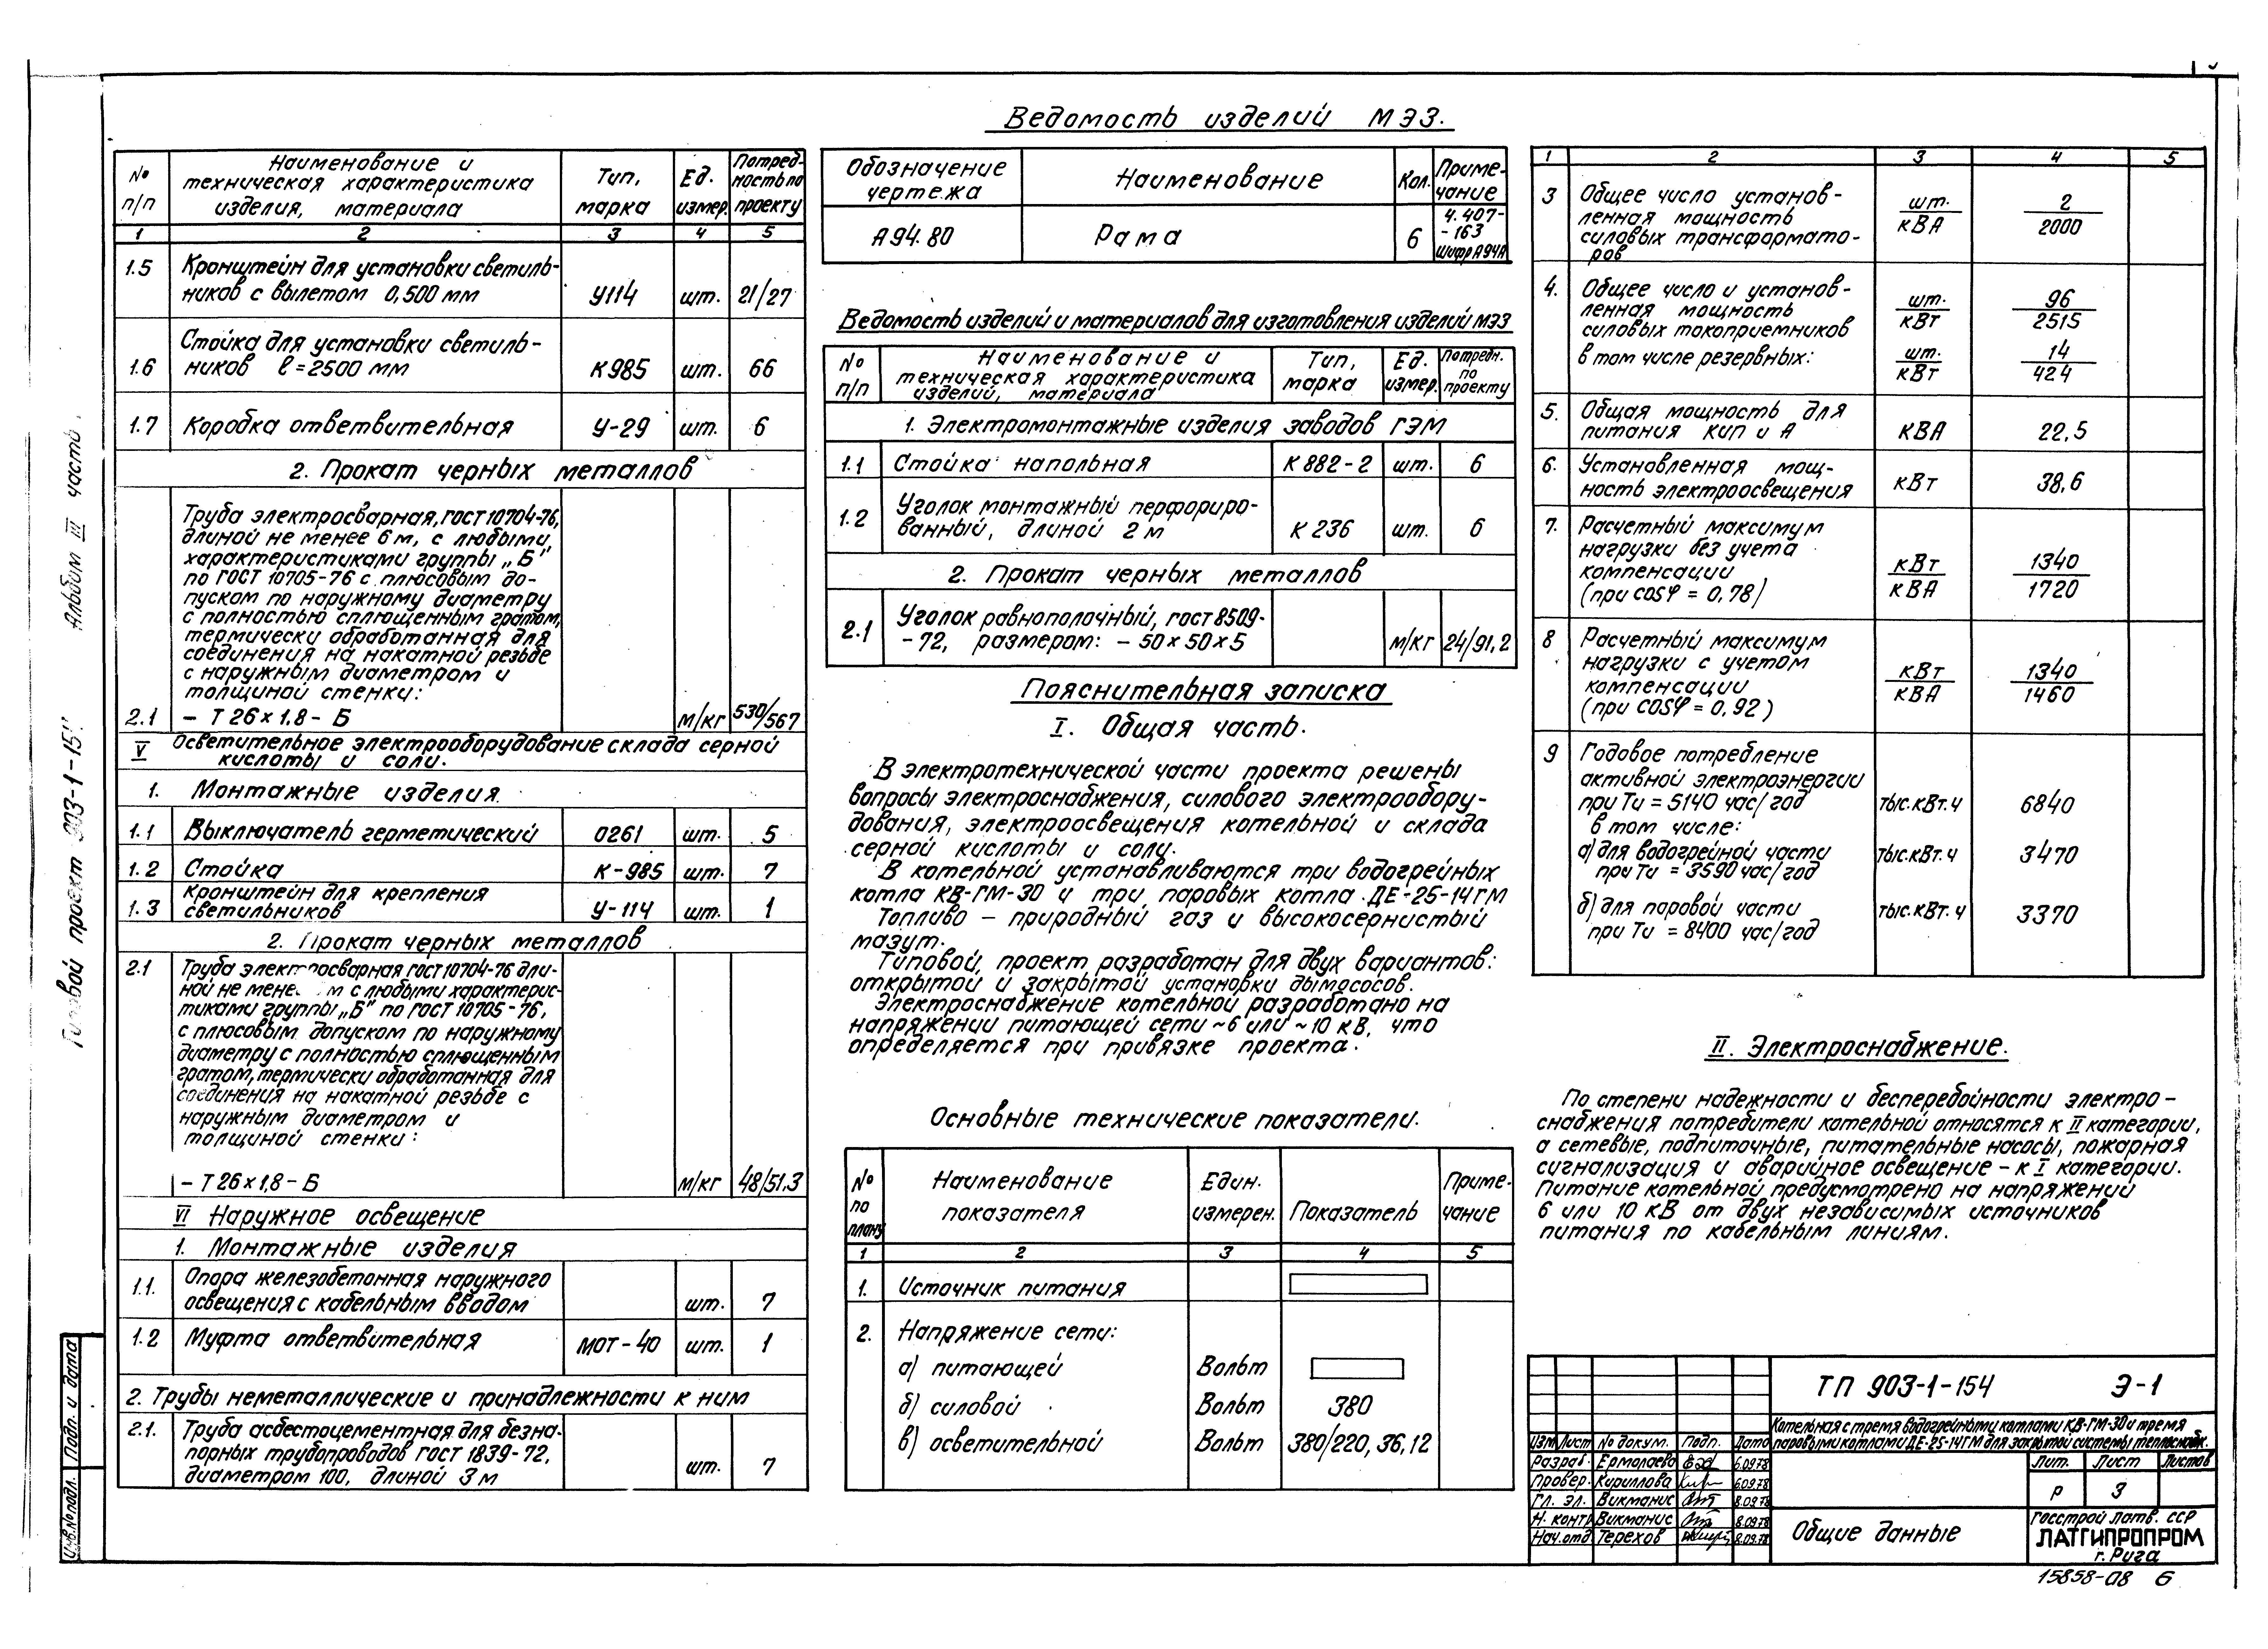 Ведомость изделий МЭЗ.
№ п/п
Наименование и
техническая характеристика
изделия, материала
Тип, марка
Ед. измер.
Потребность по проекту
1 2 3 4 5
1.5 Кронштейн для установки светиль-
ников с вылетом 0,500 мм У114 шт. 21/27
Стойка для установки светиль-
1.6 ников ℓ=2500 мм К985 шт. 66
1.7 Коробка ответвительная У-29 шт. 6
2. Прокат черных металлов
Труба электросварная, ГОСТ 10704-76,
длиной не менее 6м, с любыми
характеристиками группы „Б"
по ГОСТ 10705-76 с плюсовым до-
пуском по наружному диаметру
с полностью сплющенным гратом,
термически обработанная для
соединения на накатной резьбе
с наружным диаметром и
толщиной стенки:
2.1 - Т 26×1,8 - Б м/кг 530/567
V Осветительное электрооборудование склада серной
кислоты и соли.
1. Монтажные изделия
1.1 Выключатель герметический 0261 шт. 5
1.2 Стойка К-985 шт. 7
Кронштейн для крепления
1.3 светильников У-114 шт. 1
2. Прокат черных металлов
2.1 Труба электросварная ГОСТ 10704-76 дли-
ной не менее м с любыми характерис-
тиками группы „Б" по ГОСТ 10705-76,
с плюсовым допуском по наружному
диаметру с полностью сплющенным
гратом, термически обработанная для
соединения на накатной резьбе с
наружным диаметром и
толщиной стенки:
- Т 26×1,8 - Б м/кг 48/51.3
VI Наружное освещение
1. Монтажные изделия
1.1. Опора железобетонная наружного
освещения с кабельным вводом шт. 7
1.2 Муфта ответвительная МОТ-40 шт. 1
2. Трубы неметаллические и принадлежности к ним
2.1. Труба асбестоцементная для безна-
порных трубопроводов ГОСТ 1839-72,
диаметром 100, длиной 3м шт. 7
Обозначение чертежа
Наименование
Кол.
Примечание
А94.80 Рама 6 4.407-
-163
Шифр А94А
Ведомость изделий и материалов для изготовления изделий МЭЗ
№ п/п
Наименование и
техническая характеристика
изделий, материала
Тип, марка
Ед. измер.
Потребн. по проекту
1. Электромонтажные изделия заводов ГЭМ
1.1 Стойка напольная К882-2 шт. 6
1.2 Уголок монтажный перфориро-
ванный, длиной 2м К 236 шт. 6
2. Прокат черных металлов
2.1 Уголок равнополочный, ГОСТ 8509-
-72, размером: - 50×50×5 м/кг 24/91,2
Пояснительная записка
I. Общая часть.
В электротехнической части проекта решены
вопросы электроснабжения, силового электрообору-
дования, электроосвещения котельной и склада
серной кислоты и соли.
В котельной устанавливаются три водогрейных
котла КВ-ГМ-30 и три паровых котла ДЕ-25-14ГМ
Топливо - природный газ и высокосернистый
мазут.
Типовой, проект разработан для двух вариантов:
открытой и закрытой установки дымососов.
Электроснабжение котельной разработано на
напряжении питающей сети ~6 или ~10 кВ, что
определяется при привязке проекта.
Основные технические показатели.
№ по плану
Наименование показателя
Един. измерен.
Показатель
Примечание
1 2 3 4 5
1. Источник питания
2. Напряжение сети:
а) питающей Вольт
б) силовой Вольт 380
в) осветительной Вольт 380/220, 36, 12
1 2 3 4 5
3 Общее число установ-
ленная мощность
силовых трансформато-
ров шт./кВА 2/2000
4. Общее число и установ-
ленная мощность
силовых токоприемников шт./кВт 96/2515
в том числе резервных: шт./кВт 14/424
5. Общая мощность для
питания КИП и А КВА 22,5
6. Установленная мощ-
ность электроосвещения кВт 38,6
7. Расчетный максимум
нагрузки без учета
компенсации
(при cosφ = 0,78) кВт/кВА 1340/1720
8 Расчетный максимум
нагрузки с учетом
компенсации
(при cosφ = 0,92) кВт/кВА 1340/1460
9 Годовое потребление
активной электроэнергии
при Ти = 5140 час/год тыс.кВт.ч 6840
в том числе:
а) для водогрейной части тыс.кВт.ч 3470
при Ти = 3590 час/год
б) для паровой части тыс.кВт.ч 3370
при Ти = 8400 час/год
II. Электроснабжение.
По степени надежности и бесперебойности электро-
снабжения потребители котельной относятся к II категории,
а сетевые, подпиточные, питательные насосы, пожарная
сигнализация и аварийное освещение - к I категории.
Питание котельной предусмотрено на напряжений
6 или 10 кВ от двух независимых источников
питания по кабельным линиям.
ТП 903-1-154 Э-1
Котельная с тремя водогрейными котлами КВ-ГМ-30 и тремя
паровыми котлами ДЕ-25-14ГМ для закрытой системы теплоснабж.
Изм. Лист № докум. Подп. Дата
Разраб. Ермолаева 6.09.78
Провер. Кириллова 6.09.78
Гл. эл. Викманис 8.09.78
Н. контр. Викманис 8.09.78
Нач.отд. Терехов 8.09.78
Лит. Лист Листов
Р 3
Общие данные
Госстрой Латв. ССР
ЛАТГИПРОПРОМ
г. Рига
15858-08 6
Типовой проект 903-1-15 Альбом III часть
Инв.№ подл. Подп. и дата